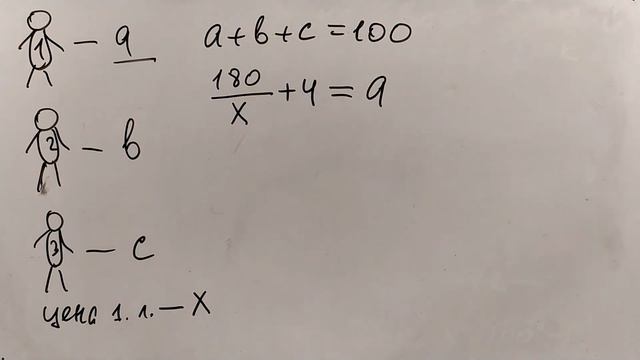 1 – a
a + b + c = 100
180/x + 4 = a
2 – b
3 – c
цена 1. л. – x